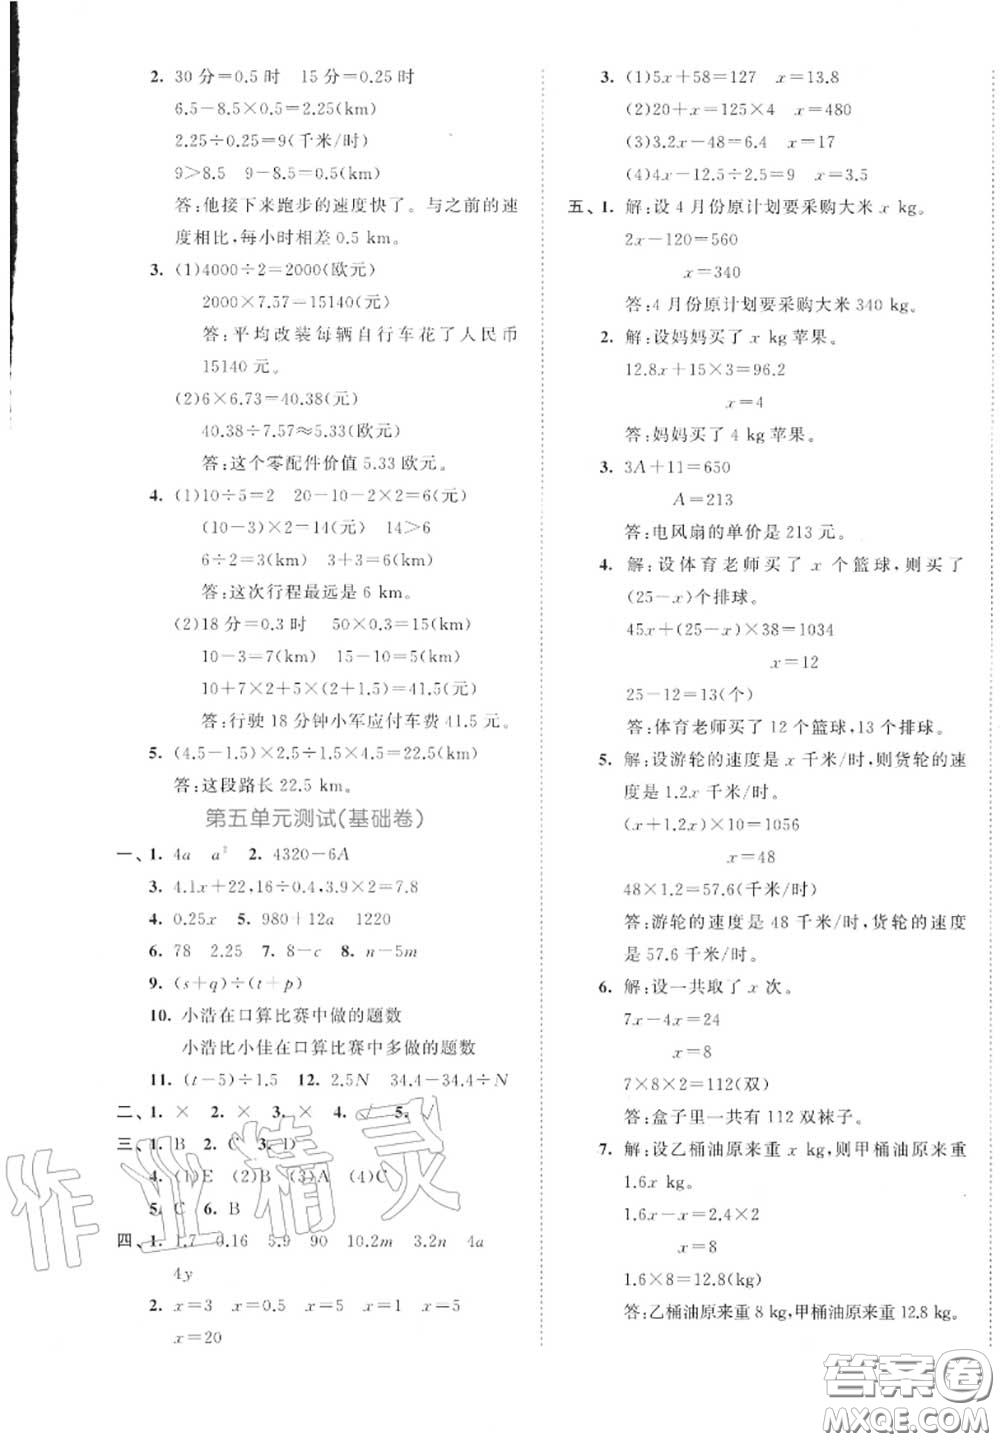 2. 30分=0.5时 15分=0.25时
6.5-8.5×0.5=2.25(km)
2.25÷0.25=9(千米/时)
9>8.5 9-8.5=0.5(km)
答:他接下来跑步的速度快了。与之前的速
度相比,每小时相差0.5 km。
3. (1)4000÷2=2000(欧元)
2000×7.57=15140(元)
答:平均改装每辆自行车花了人民币
15140元。
(2)6×6.73=40.38(元)
40.38÷7.57≈5.33(欧元)
答:这个零配件价值5.33欧元。
4. (1)10÷5=2 20-10-2×2=6(元)
(10-3)×2=14(元) 14>6
6÷2=3(km) 3+3=6(km)
答:这次行程最远是6 km。
(2)18分=0.3时 50×0.3=15(km)
10-3=7(km) 15-10=5(km)
10+7×2+5×(2+1.5)=41.5(元)
答:行驶18分钟小军应付车费41.5元。
5. (4.5-1.5)×2.5÷1.5×4.5=22.5(km)
答:这段路长22.5 km。
第五单元测试(基础卷)
一、1. 4a a² 2. 4320-6A
3. 4.1x+22,16÷0.4,3.9×2=7.8
4. 0.25x 5. 980+12a 1220
6. 78 2.25 7. 8-c 8. n-5m
9. (s+q)÷(t+p)
10. 小浩在口算比赛中做的题数
小浩比小佳在口算比赛中多做的题数
11. (t-5)÷1.5 12. 2.5N 34.4-34.4÷N
二、1. × 2. × 3. × 4. 5.
三、1. B 2. C 3. D
4. (1)E (2)B (3)A (4)C
5. C 6. B
四、1. 1.7 0.16 5.9 90 10.2m 3.2n 4a
4y
2. x=3 x=0.5 x=5 x=1 x=5
x=20
3. (1)5x+58=127 x=13.8
(2)20+x=125×4 x=480
(3)3.2x-48=6.4 x=17
(4)4x-12.5÷2.5=9 x=3.5
五、1. 解:设4月份原计划要采购大米x kg。
2x-120=560
x=340
答:4月份原计划要采购大米340 kg。
2. 解:设妈妈买了x kg苹果。
12.8x+15×3=96.2
x=4
答:妈妈买了4 kg苹果。
3. 3A+11=650
A=213
答:电风扇的单价是213元。
4. 解:设体育老师买了x个篮球,则买了
(25-x)个排球。
45x+(25-x)×38=1034
x=12
25-12=13(个)
答:体育老师买了12个篮球,13个排球。
5. 解:设游轮的速度是x千米/时,则货轮的速
度是1.2x千米/时。
(x+1.2x)×10=1056
x=48
48×1.2=57.6(千米/时)
答:游轮的速度是48千米/时,货轮的速度
是57.6千米/时。
6. 解:设一共取了x次。
7x-4x=24
x=8
7×8×2=112(双)
答:盒子里一共有112双袜子。
7. 解:设乙桶油原来重x kg,则甲桶油原来重
1.6x kg。
1.6x-x=2.4×2
x=8
1.6×8=12.8(kg)
答:乙桶油原来重8 kg,甲桶油原来重12.8 kg。
作业精灵
答案圈
MXQE.COM